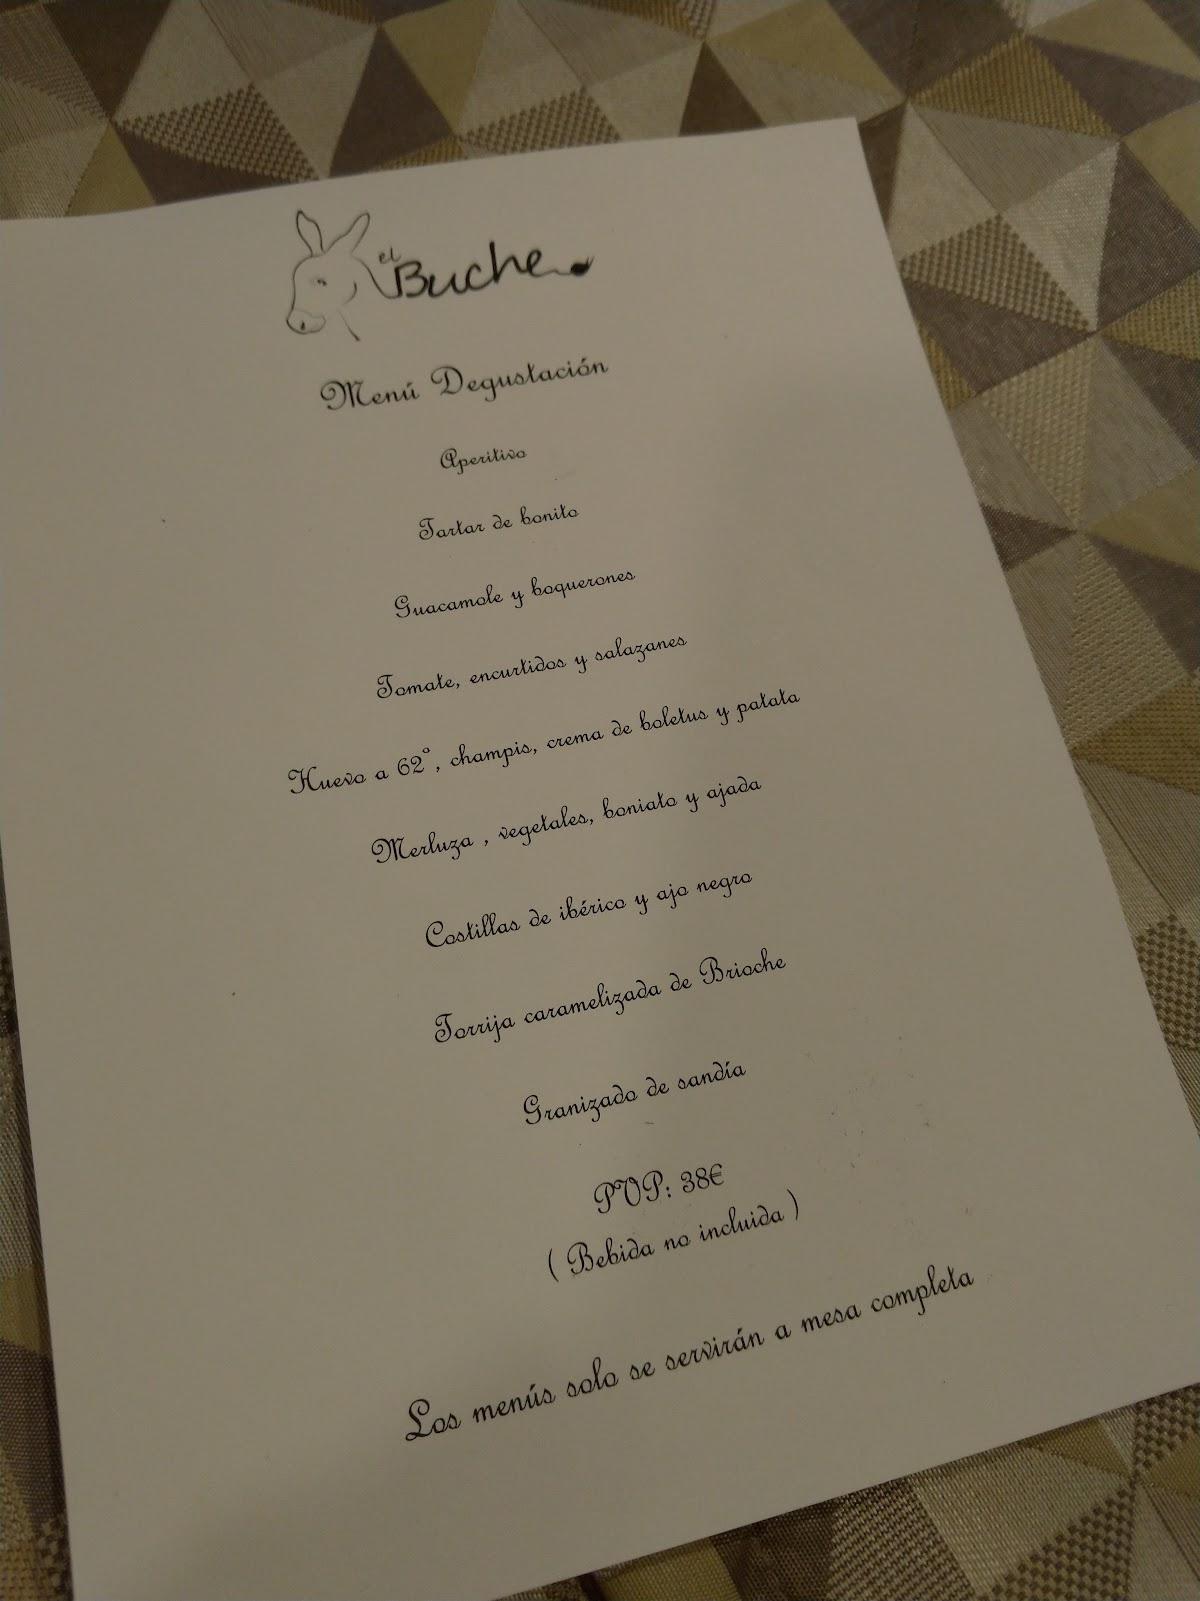 el Buche
Menú Degustación
Aperitivo
Tartar de bonito
Guacamole y boquerones
Tomate, encurtidos y salazanes
Huevo a 62º, champis, crema de boletus y patata
Merluza , vegetales, boniato y ajada
Costillas de ibérico y ajo negro
Torrija caramelizada de Brioche
Granizado de sandía
PVP: 38€
( Bebida no incluida )
Los menús solo se servirán a mesa completa